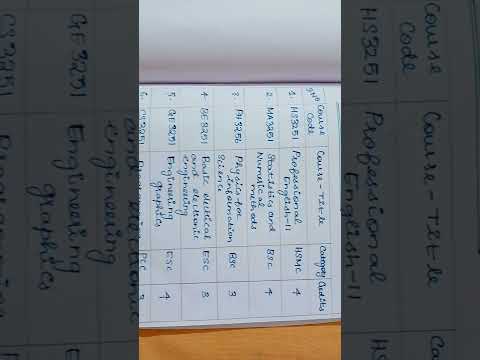 S.NO Course Course-Title Category Credits
Code
1. HS3251 Professional HSMC 4
English-II
2. MA3251 Statistics and BSC 4
Numirical
methods
3. PH3256 Physics for BSC 3
information
Science
4. BE3251 Basic electrical ESC 3
and electronic
engineering
5. GE3251 Engineering ESC 4
graphics
6. CS3251 PCC 3
Course Course-Title
Code
HS3251 Professional
English-II
engineering
GE3251 Engineering
graphics
CS3251